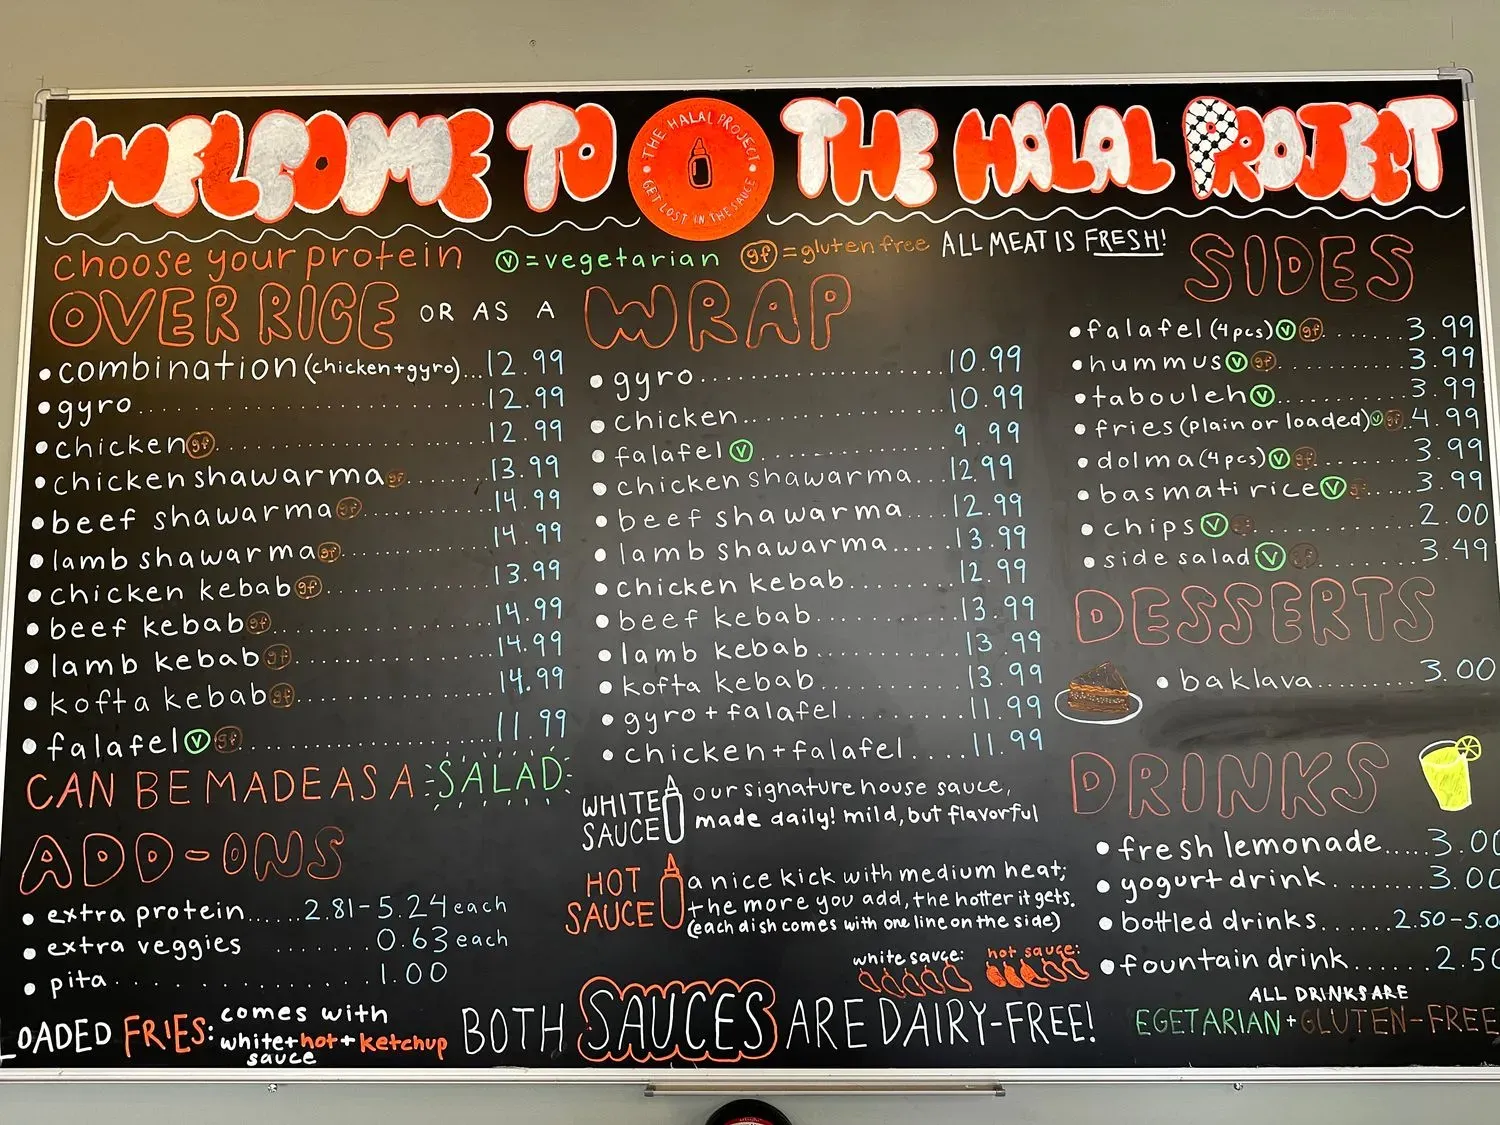 WELCOME TO THE HALAL PROJECT
THE HALAL PROJECT
GET LOST IN THE SAUCE
choose your protein
v = vegetarian
gf = gluten free
ALL MEAT IS FRESH!
OVER RICE OR AS A WRAP
combination (chicken+gyro)...12.99
gyro 12.99
chicken gf 12.99
chicken shawarma gf 13.99
beef shawarma gf 14.99
lamb shawarma gf 14.99
chicken kebab gf 13.99
beef kebab gf 14.99
lamb kebab gf 14.99
kofta kebab gf 14.99
falafel v gf 11.99
CAN BE MADE AS A SALAD
ADD-ONS
extra protein 2.81-5.24 each
extra veggies 0.63 each
pita 1.00
LOADED FRIES: comes with
white+hot+ketchup
sauce
gyro 10.99
chicken 10.99
falafel v 9.99
chicken shawarma 12.99
beef shawarma 12.99
lamb shawarma 13.99
chicken kebab 12.99
beef kebab 13.99
lamb kebab 13.99
kofta kebab 13.99
gyro+falafel 11.99
chicken+falafel 11.99
WHITE SAUCE
our signature house sauce,
made daily! mild, but flavorful
HOT SAUCE
a nice kick with medium heat;
the more you add, the hotter it gets.
(each dish comes with one line on the side)
white sauce:
hot sauce:
BOTH SAUCES ARE DAIRY-FREE!
SIDES
falafel (4 pcs) v gf 3.99
hummus v gf 3.99
tabouleh v 3.99
fries (plain or loaded) v gf 4.99
dolma (4 pcs) v gf 3.99
basmati rice v gf 3.99
chips v gf 2.00
side salad v gf 3.49
DESSERTS
baklava 3.00
DRINKS
fresh lemonade 3.00
yogurt drink 3.00
bottled drinks 2.50-5.0
fountain drink 2.50
ALL DRINKS ARE
EGETARIAN + GLUTEN-FREE